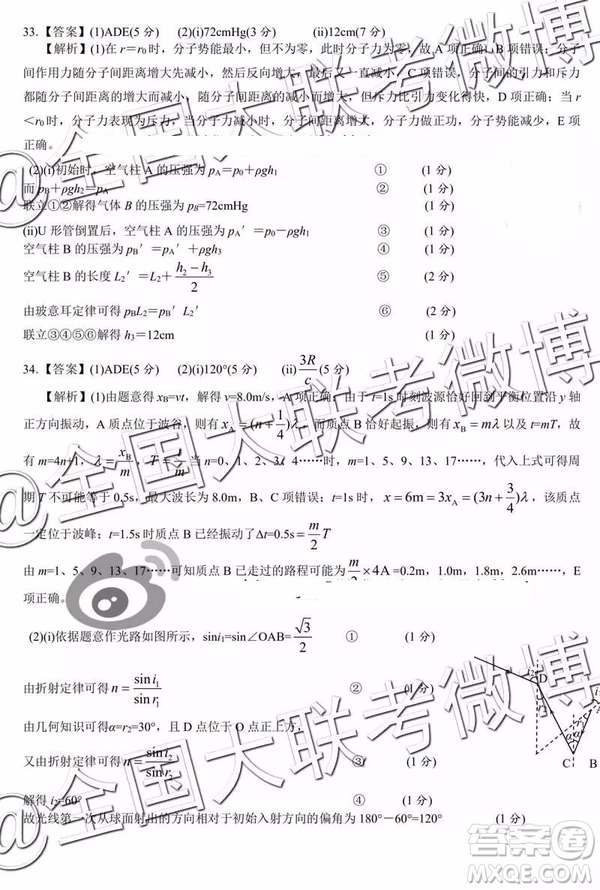 33.【答案】(1)ADE(5 分) (2)(i)72cmHg(3 分) (ii)12cm(7 分)
【解析】(1)在 r＝r₀时，分子势能最小，但不为零，此时分子力为零，故 A 项正确，B 项错误；分子
间作用力随分子间距离增大先减小，然后反向增大，最后又一直减小，C 项错误；分子间的引力和斥力
都随分子间距离的增大而减小，随分子间距离的减小而增大，但斥力比引力变化得快，D 项正确；当 r
＜r₀时，分子力表现为斥力，当分子力减小时，分子间距离增大，分子力做正功，分子势能减少，E 项
正确。
(2)(i)初始时，空气柱 A 的压强为 pA＝p₀＋ρgh₁ ① (1 分)
而 pB＋ρgh₂＝pA ② (1 分)
联立①②解得气体 B 的压强为 pB=72cmHg (1 分)
(ii)U 形管倒置后，空气柱 A 的压强为 pA′＝p₀－ρgh₁ ③ (1 分)
空气柱 B 的压强为 pB′＝pA′＋ρgh₃ ④ (1 分)
空气柱 B 的长度 L₂′＝L₂＋(h₂－h₃)/2 ⑤ (2 分)
由玻意耳定律可得 pBL₂＝pB′L₂′ ⑥ (2 分)
联立③④⑤⑥解得 h₃＝12cm (1 分)
34.【答案】(1)ADE(5 分) (2)(i)120°(5 分) (ii)3R/c(5 分)
【解析】(1)由题意得 xB=vt，解得 v=8.0m/s，A 项正确；由于 t=1s 时刻波源恰好回到平衡位置沿 y 轴
正方向振动，A 质点位于波谷，则有 xA=(n+1/4)λ，而质点 B 恰好起振，则有 xB=mλ以及 t=mT，故
有 m=4n+1，λ=xB/m，T=t/m，当 n=0、1、2、3、4……时，m=1、5、9、13、17……，代入上式可得周
期 T 不可能等于 0.5s，最大波长为 8.0m，B、C 项错误；t=1s 时，x=6m=3xA=(3n+3/4)λ，该质点
一定位于波峰；t=1.5s 时质点 B 已经振动了Δt=0.5s=m/2 T
由 m=1、5、9、13、17……可知质点 B 已走过的路程可能为 m/2×4A=0.2m、1.0m、1.8m、2.6m……，E
项正确。
(2)(i)依据题意作光路如图所示，sini₁=sin∠OAB=√3/2 ① (1 分)
由折射定律可得 n=sin i₁/sin r₁ ② (1 分)
由几何知识可得α=r₂=30°，且 D 点位于 O 点正上方，
又由折射定律可得 n=sin i₂/sin r₂ ③ (1 分)
解得 i₂=60° ④ (1 分)
故光线第一次从球面射出的方向相对于初始入射方向的偏角为 180°－60°=120° (1 分)
D
C
B
@全国大联考微博
@全国大联考微博
@全国大联考微博
答案圈
MXQE.COM